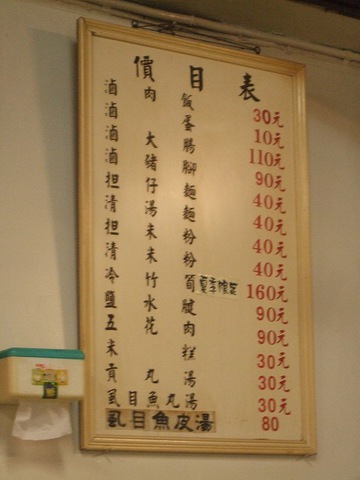 價目表
滷肉飯 30元
滷蛋 10元
滷大腸 110元
滷豬腳 90元
担仔麵 40元
清湯麵 40元
担米粉 40元
清米粉 40元
冷竹筍 夏季 160元
鹽水腱 90元
五花肉 90元
米糕 30元
貢丸湯 30元
虱目魚丸湯 30元
虱目魚皮湯 80